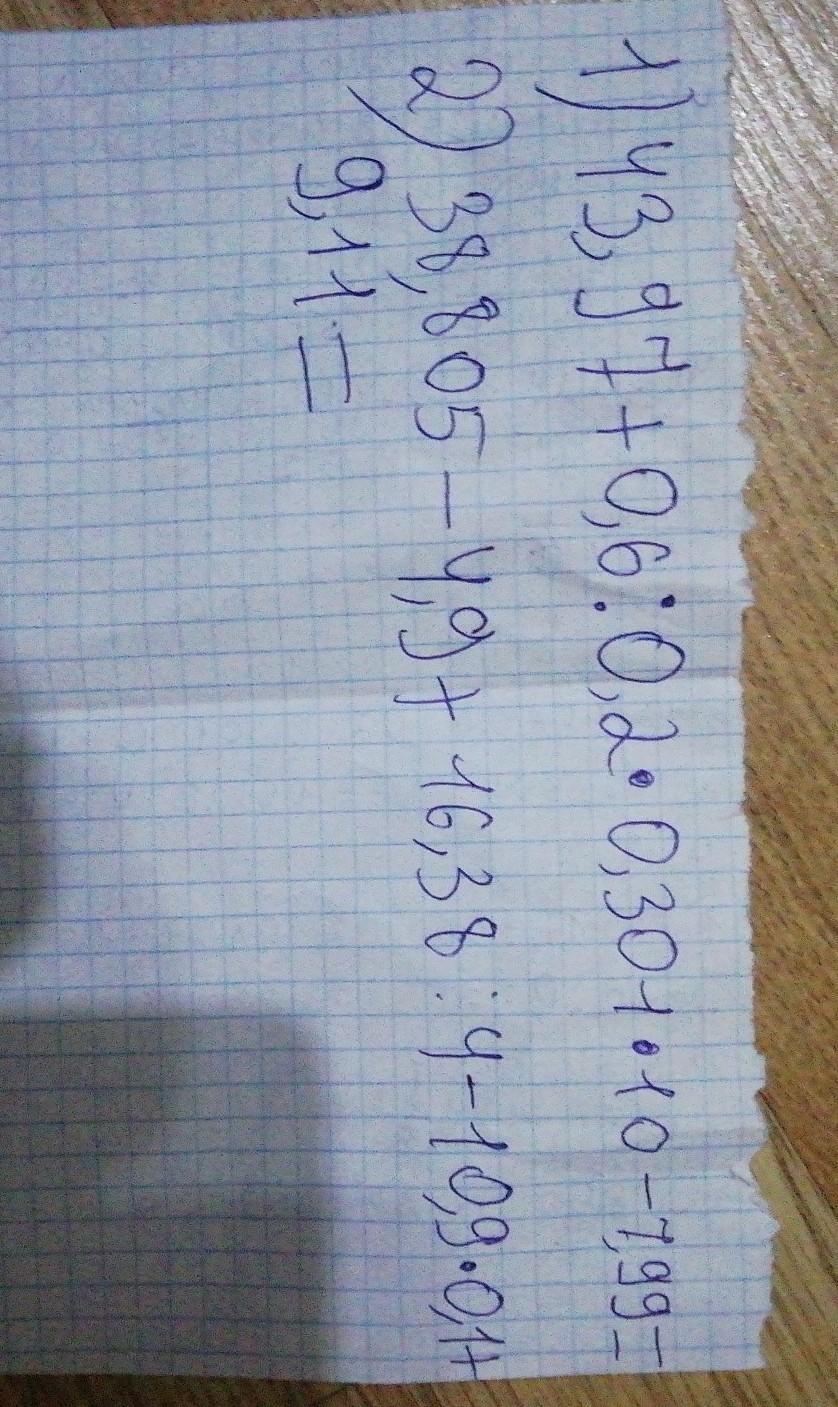 1) 43,97+0,6:0,2·0,301·10-7,99=
2) 38,805-4,9+16,38:4-10,9·0,1+
9,11=